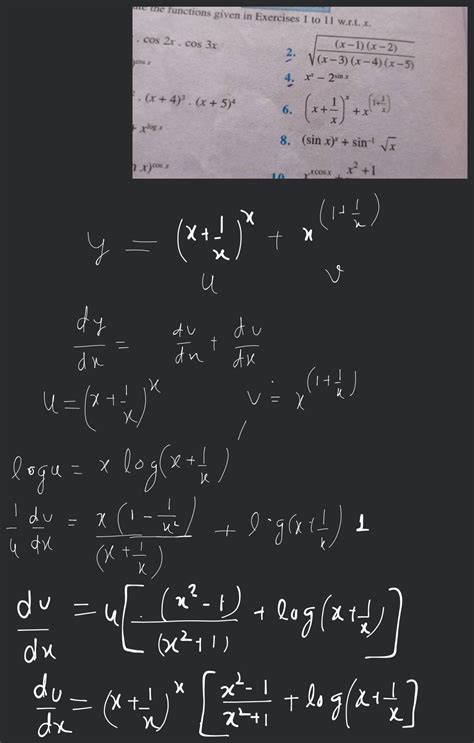 the functions given in Exercises 1 to 11 w.r.t. x.
. cos 2x . cos 3x
2. √((x−1)(x−2)/((x−3)(x−4)(x−5)))
)^cos x
4. x^x − 2^sin x
. (x + 4)³ . (x + 5)⁴
6. (x + 1/x)^x + x^(1+1/x)
+ x^log x
8. (sin x)^x + sin⁻¹ √x
x)^cos x
10. x^x cos x + (x² + 1
y = (x + 1/x)^x + x^(1 + 1/x)
u v
dy/dx = du/dx + dv/dx
u = (x + 1/x)^x v = x^(1 + 1/x)
log u = x log(x + 1/x)
1/u du/dx = x(1 − 1/x²)/(x + 1/x) + log(x + 1/x) 1
du/dx = u[(x² − 1)/(x² + 1) + log(x + 1/x)]
du/dx = (x + 1/x)^x [x² − 1/x² + 1 + log(x + 1/x]